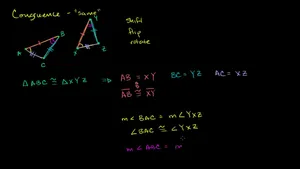 Congruence - "same"
shift
flip
rotate
A
B
C
X
Y
Z
△ABC ≅ △XYZ ⇒ AB = XY BC = YZ AC = XZ
AB ≅ XY
m∠BAC = m∠YXZ
∠BAC ≅ ∠YXZ
m∠ABC = m